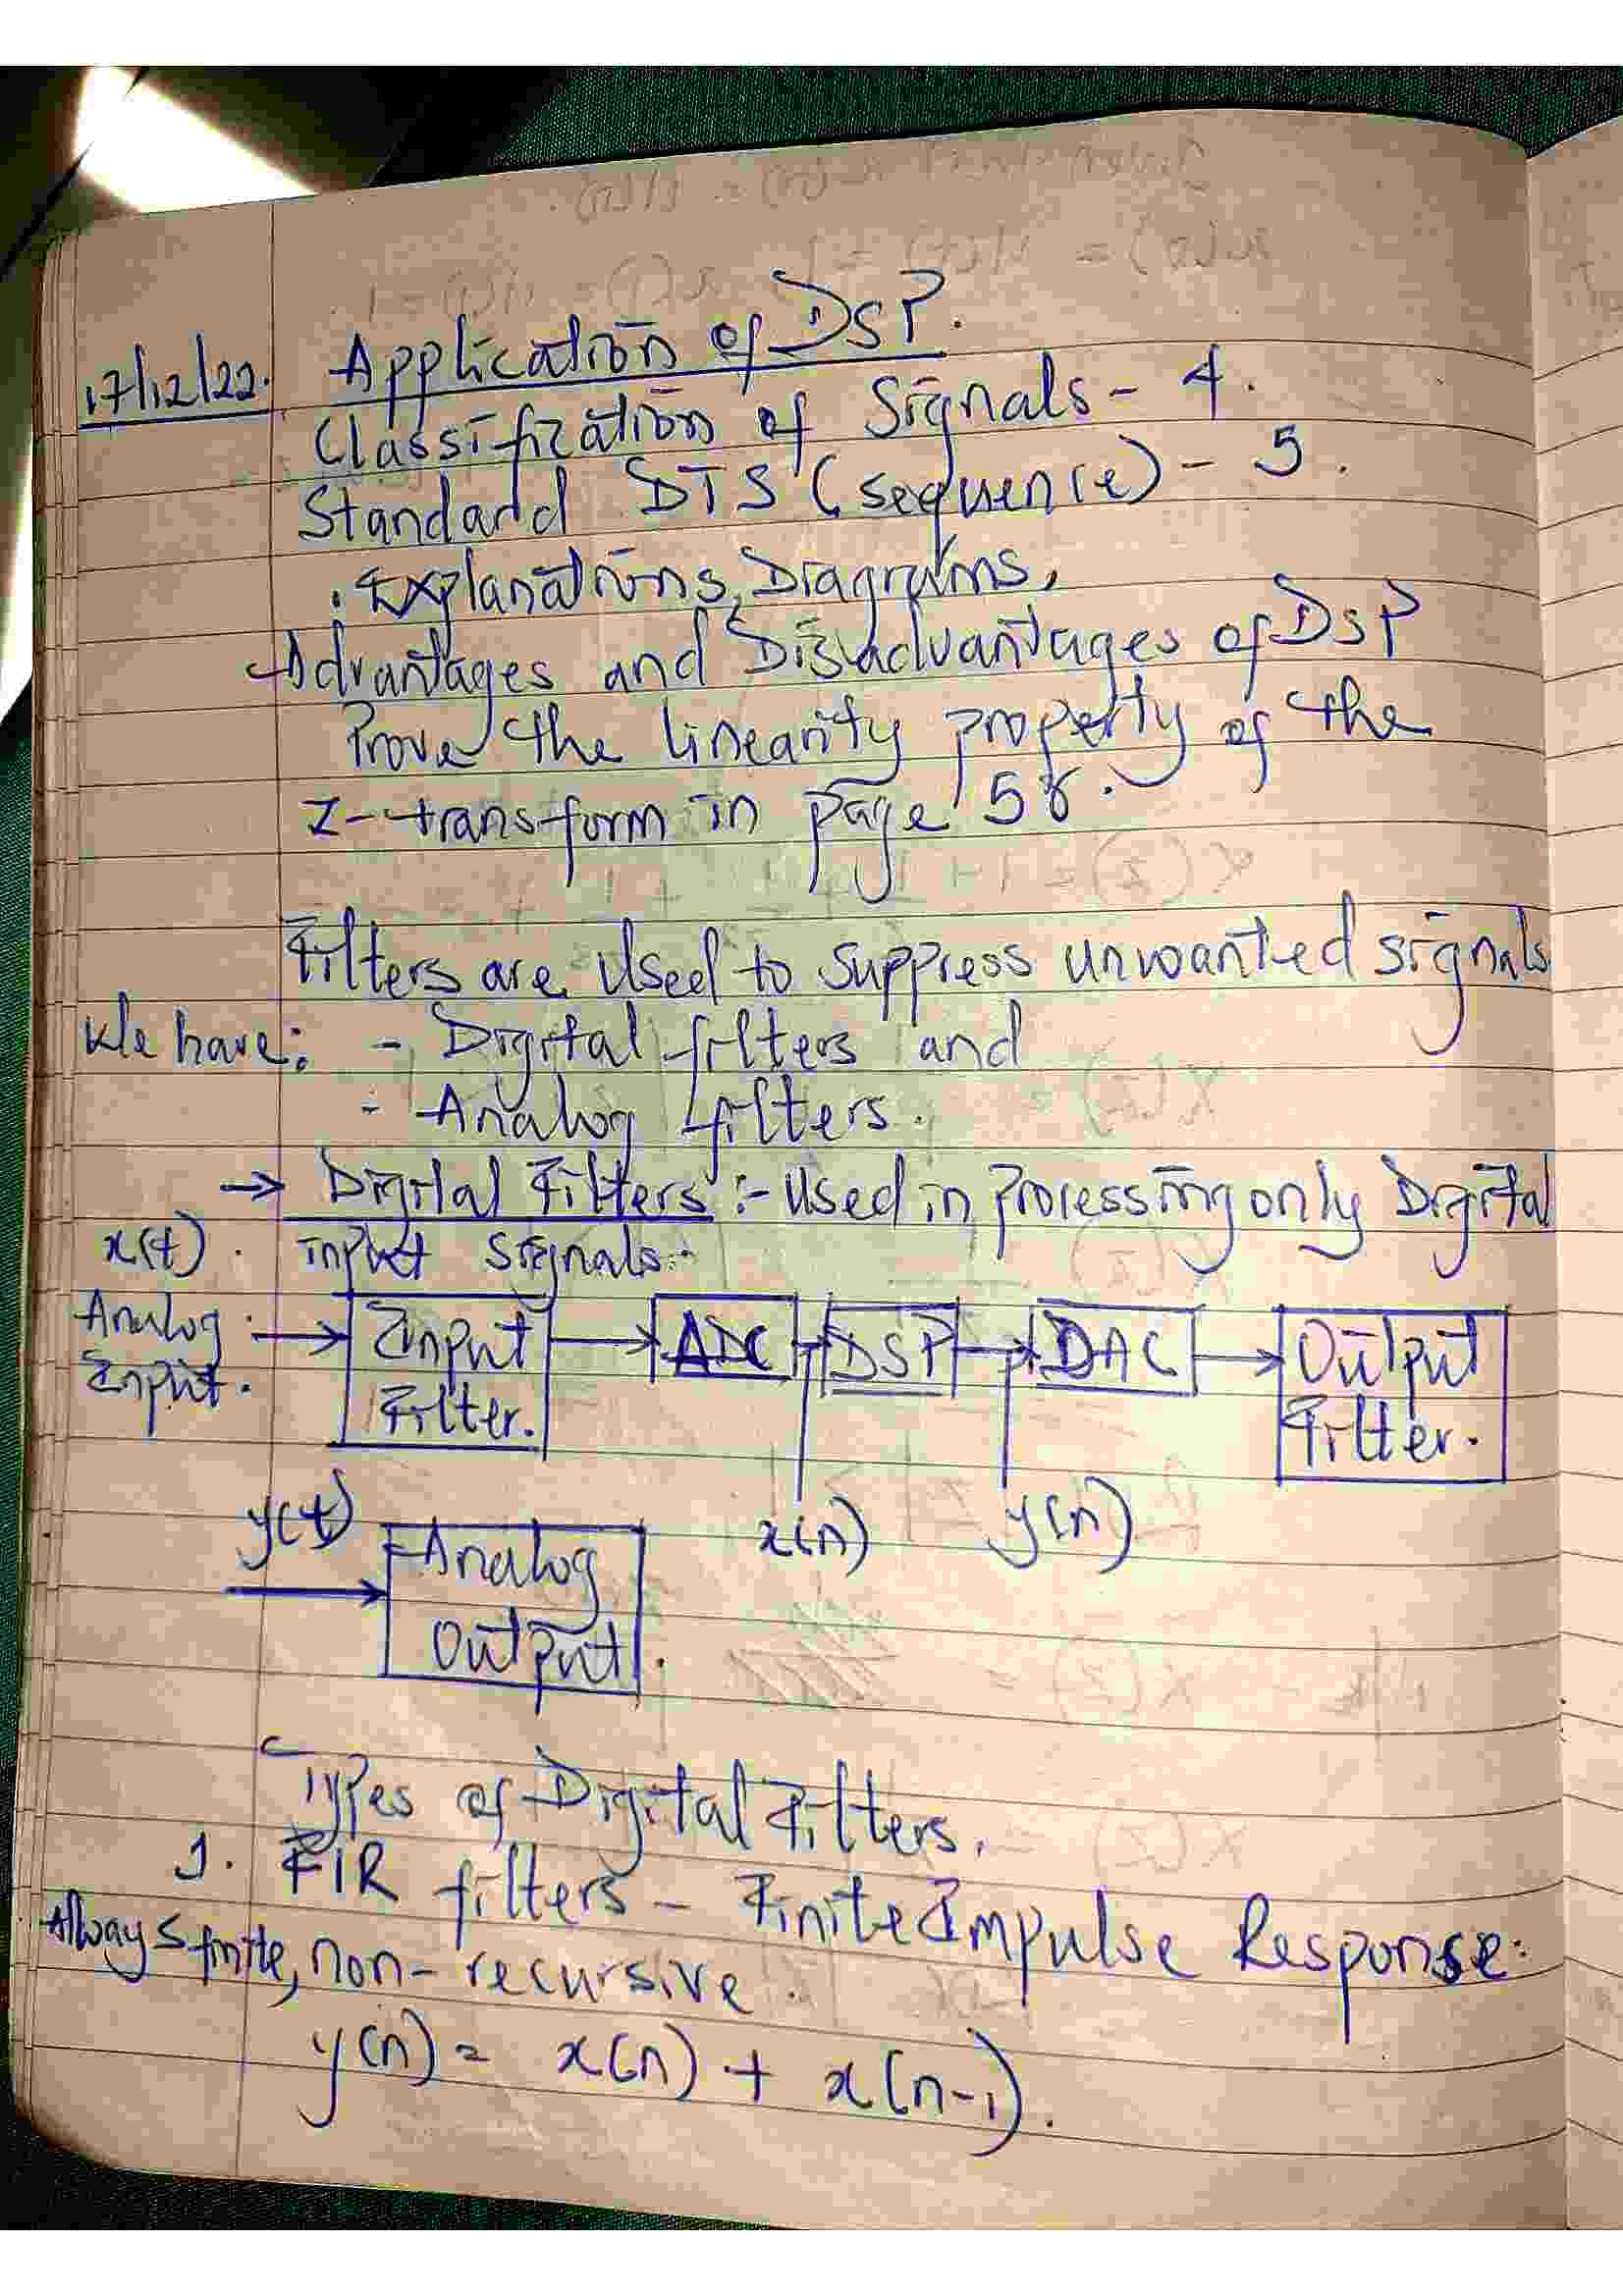 17/12/22. Application of DSP.
Classification of Signals - 4.
Standard DTS (sequence) - 5.
. Explanations, Diagrams,
Advantages and Disadvantages of DSP
Prove the linearity property of the
Z-transform in page 58.
Filters are used to suppress unwanted signals
We have: - Digital filters and
- Analog filters.
→ Digital Filters :- Used in processing only Digital
x(t). input signals.
Analog Input. Input Filter. ADC DSP DAC Output Filter.
x(n) y(n)
y(t) Analog Output.
Types of Digital Filters.
1. FIR filters - Finite Impulse Response.
Always finite, non-recursive.
y(n) = x(n) + x(n-1).